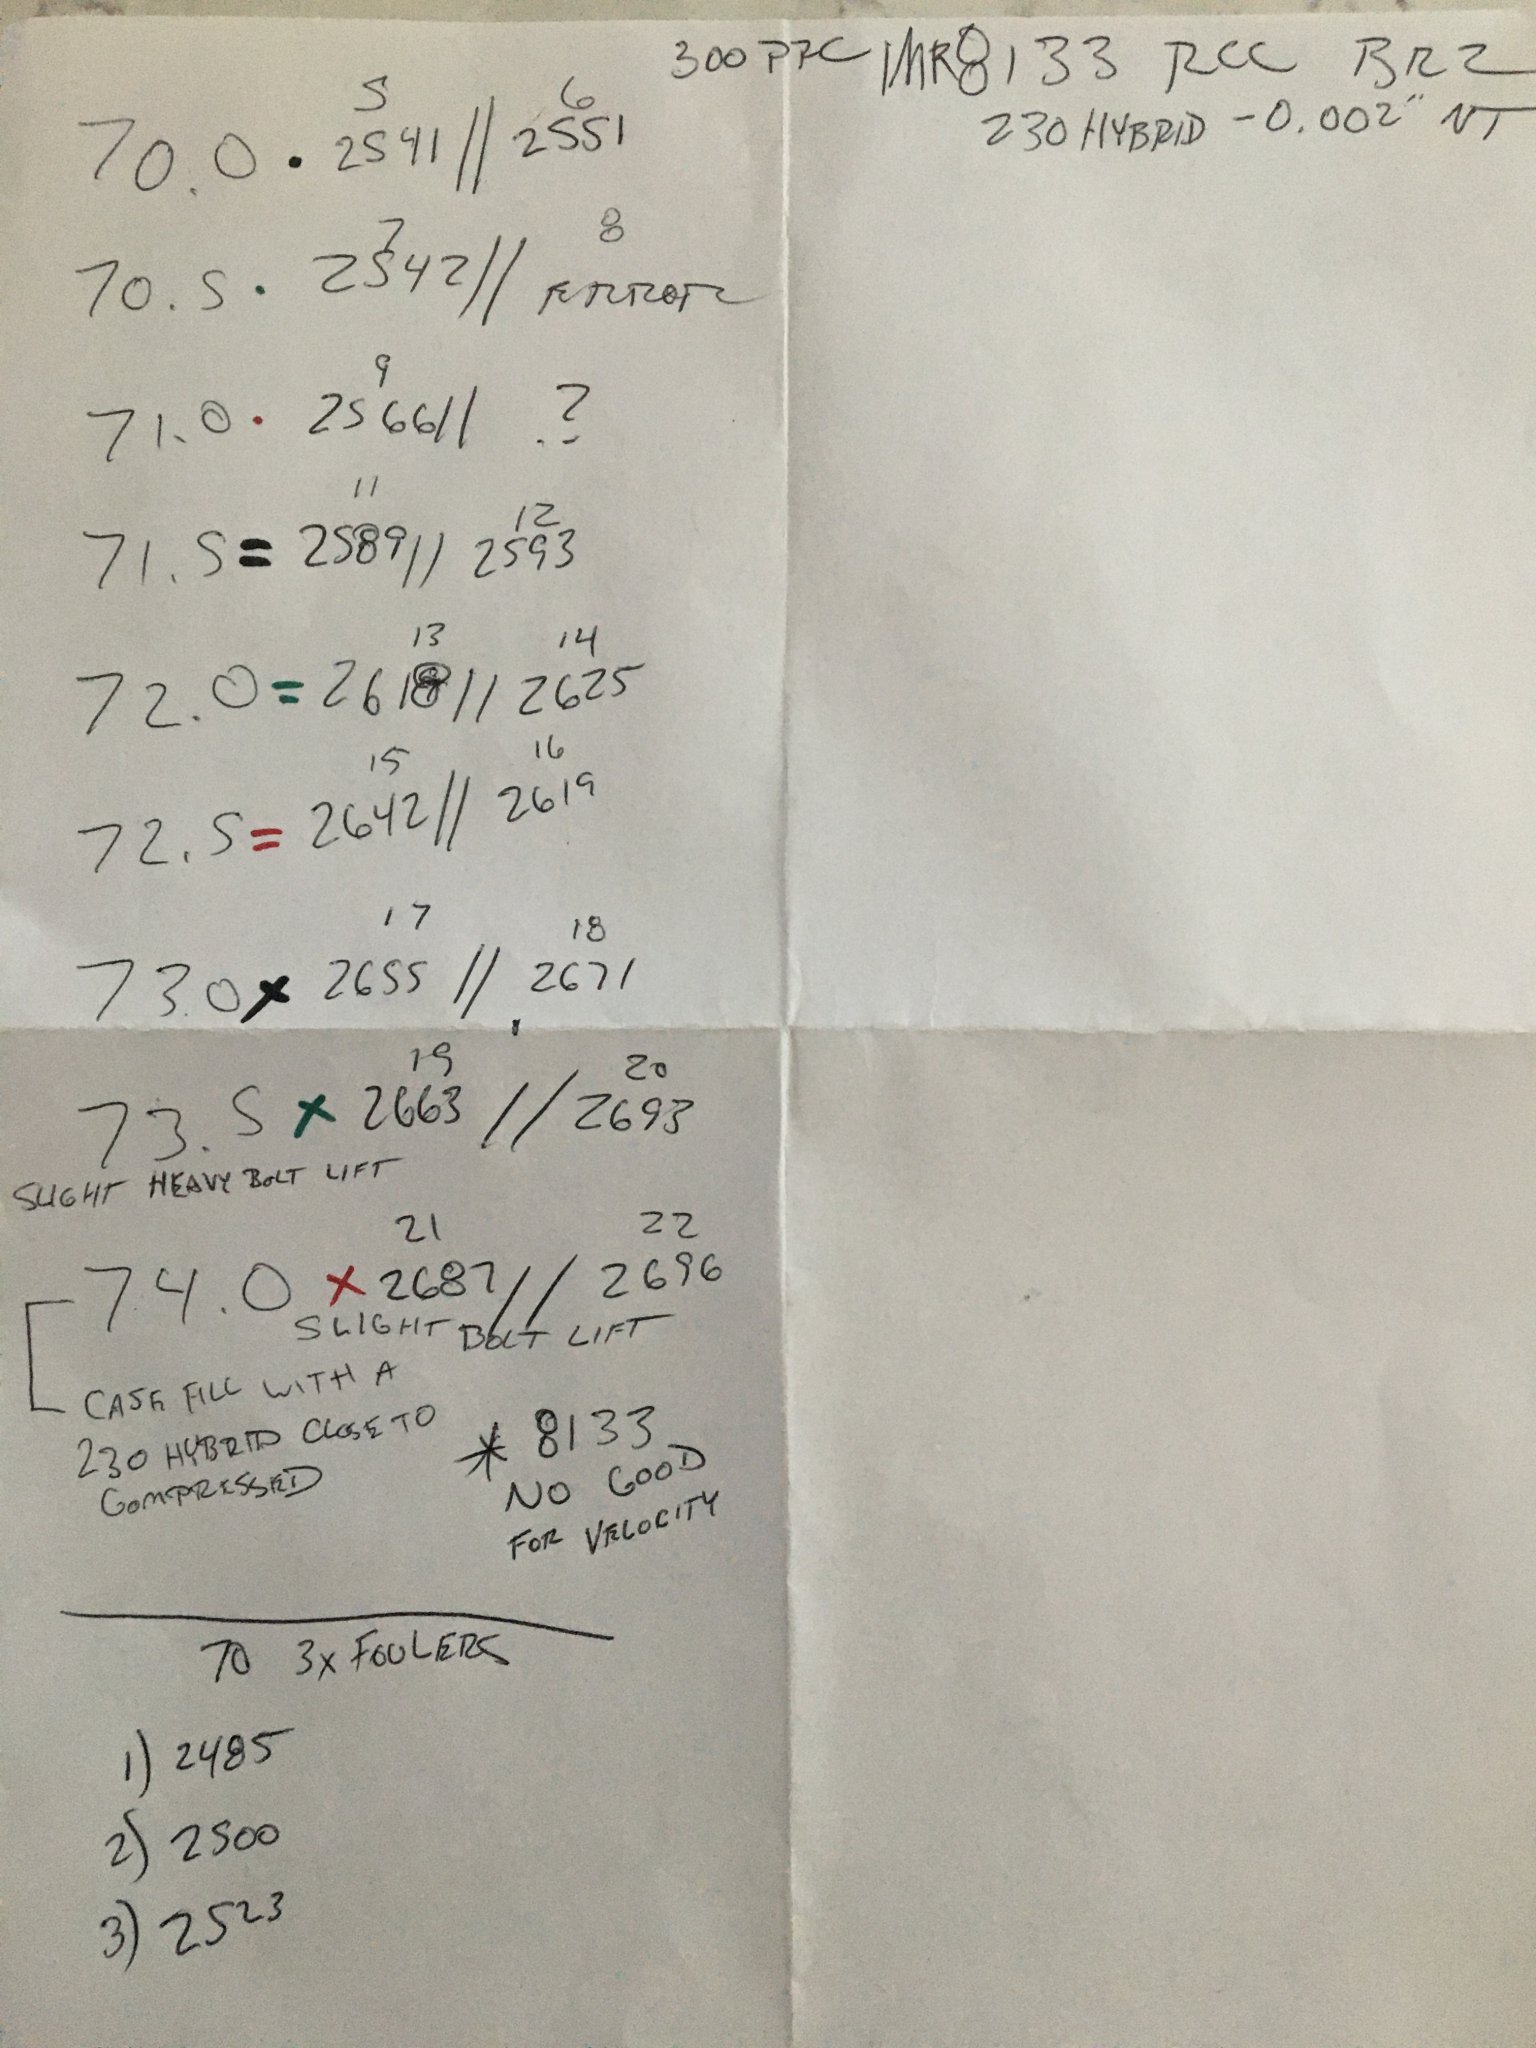 300 PRC IMR8133 RCC BR2
230 HYBRID -0.002" NT
5 6
70.0 • 2541 // 2551
7 8
70.5 • 2542 // ERROR
9
71.0 • 2566 // ?
11 12
71.5 = 2589 // 2593
13 14
72.0 = 2618 // 2625
15 16
72.5 = 2642 // 2619
17 18
73.0 x 2655 // 2671
19 20
73.5 x 2663 // 2693
SLIGHT HEAVY BOLT LIFT
21 22
74.0 x 2687 // 2696
SLIGHT BOLT LIFT
CASE FILL WITH A
230 HYBRID CLOSE TO
COMPRESSED
* 8133
NO GOOD
FOR VELOCITY
70 3x FOULERS
1) 2485
2) 2500
3) 2523